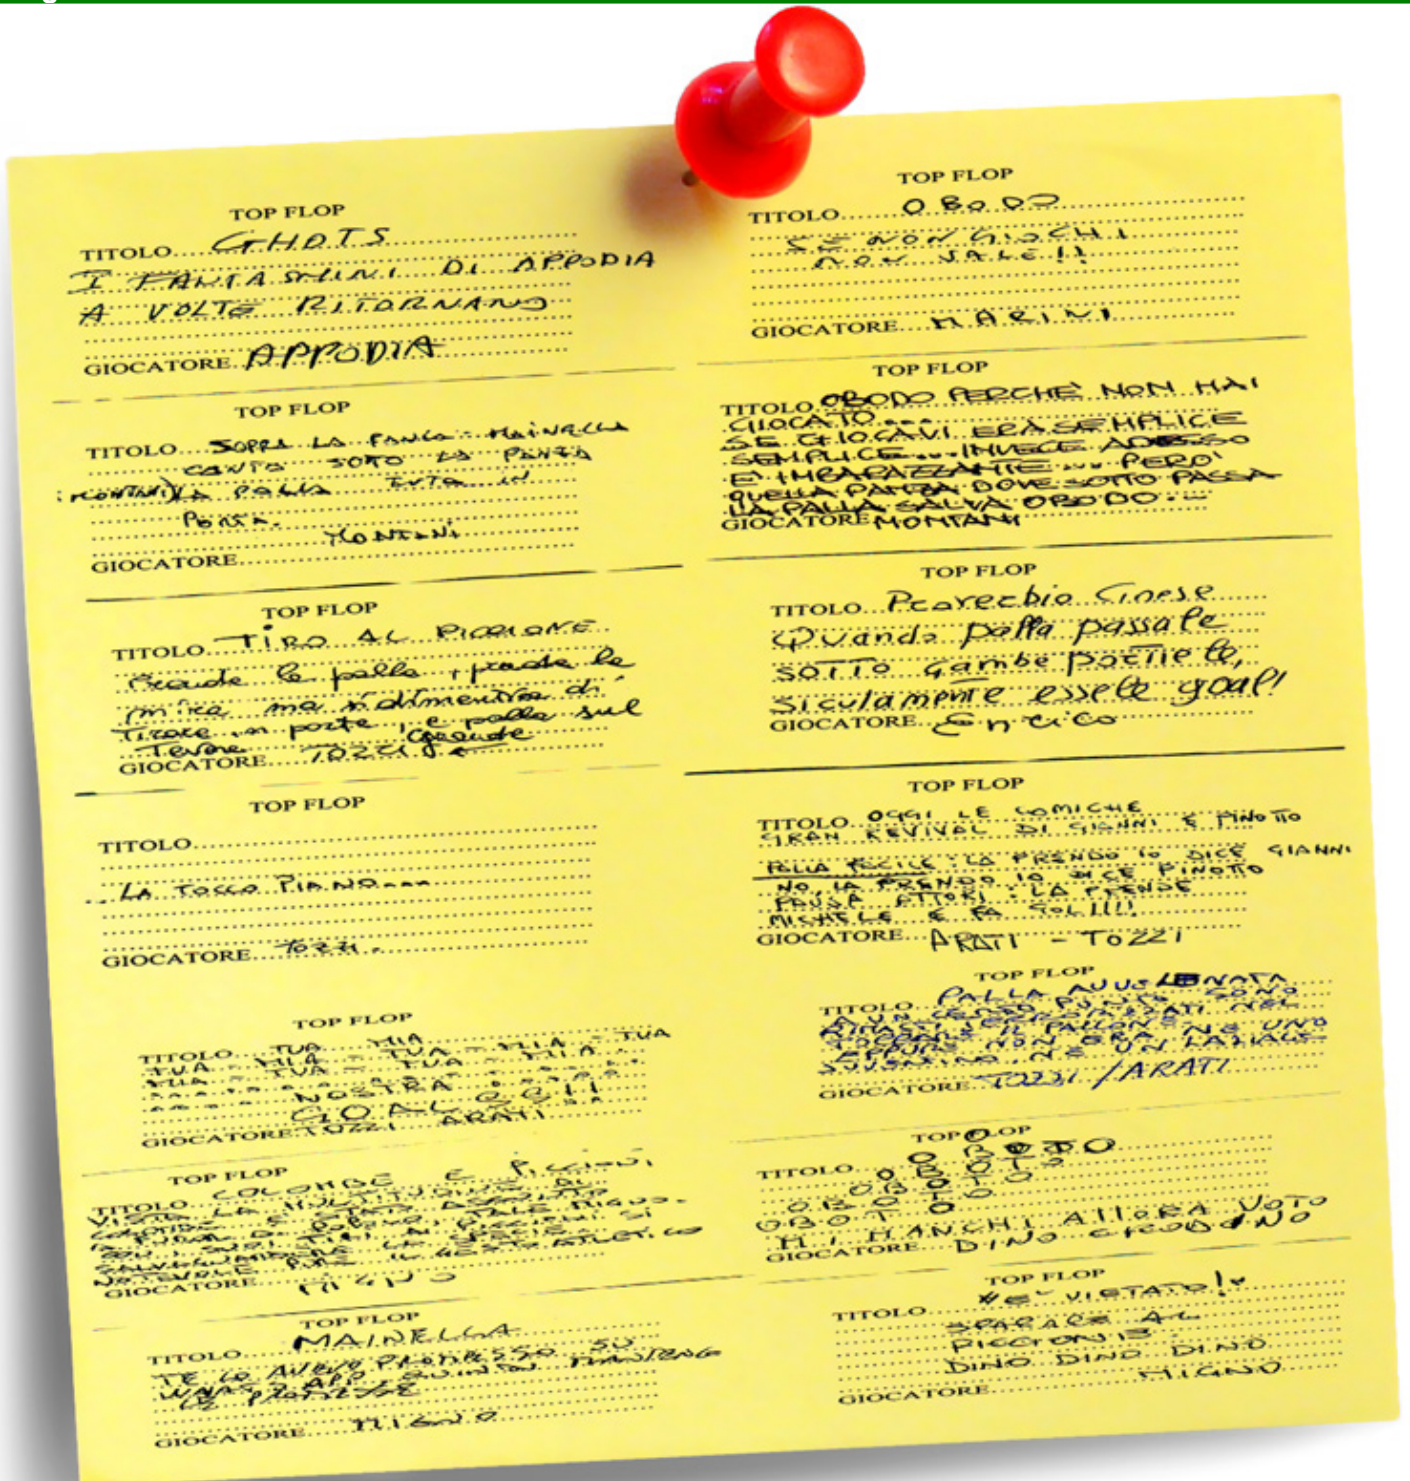 TOP FLOP
TITOLO GHOTS
I FANTASMINI DI APPODIA
A VOLTE RITORNANO
GIOCATORE APPODIA
TOP FLOP
TITOLO SOPRA LA PANCA MAINELLA
CANTA SOTO LA PANZA
(MONTANI) LA PALLA TUTA IN
PORTA.
MONTANI
GIOCATORE
TOP FLOP
TITOLO TIRO AL PICCIONE
Prende la palla, prende la
mira ma si dimentica di
Tirare in porta, e palla sul
Tevere
GIOCATORE TOZZI
TOP FLOP
TITOLO
LA TOCCO PIANO....
GIOCATORE TOZZI.
TOP FLOP
TITOLO TUA MIA
TUA - MIA - TUA - MIA - TUA
MIA - TUA - TUA - MIA -
NOSTRA
GOAL
GIOCATORE TOZZI ARATI
TOP FLOP
TITOLO COLOMBE E PICCIONI
VISTA LA MOLTITUDINE DI
I SUOI TIRI AI PICCIONI SI
NOTEVOLE IL GESTO ATLETICO
GIOCATORE MIGNO
TOP FLOP
TITOLO MAINELLA
TE LO AVEVO PROMESSO SU
GIOCATORE MIGNO
TOP FLOP
TITOLO OBODO
SE NON GIOCHI
NON VALE!!
GIOCATORE MARINI
TOP FLOP
TITOLO OBODO PERCHE' NON HAI
GIOCATO....
SE GIOCAVI ERA SEMPLICE
SEMPLICE... INVECE ADESSO
E' IMBARAZZANTE... PERO'
QUELLA PANZA DOVE SOTTO PASSA
LA PALLA SALVA OBODO....
GIOCATORE MONTANI
TOP FLOP
TITOLO Proverbio Cinese
Quando palla passale
SOTTO gambe poltiele,
siculamente essele goal!
GIOCATORE Enrico
TOP FLOP
TITOLO OGGI LE COMICHE
GRAN REVIVAL DI GIANNI E PINOTTO
PALLA FACILE: LA PRENDO IO DICE GIANNI
NO, LA PRENDO IO DICE PINOTTO
PAUSA ATTORI: LA PRENDE
MICHELE E FA GOL!!!!
GIOCATORE ARATI - TOZZI
TOP FLOP
TITOLO PALLA AVVELENATA
A UN CERTO PUNTO SONO
RIMASTI TERRORIZZATI NEL
IL PALLONE
EPPURE NON ERA NE UNO
NE UN LAZIALE
GIOCATORE TOZZI / ARATI
TOP FLOP
TITOLO OBOTO
OBOTO
OBOTO
OBOTO
MI MANCHI AllORA VOTO
GIOCATORE DINO
TOP FLOP
TITOLO E' VIETATO!
SPARARE AL
PICCIONE
DINO DINO DINO
GIOCATORE MIGNO